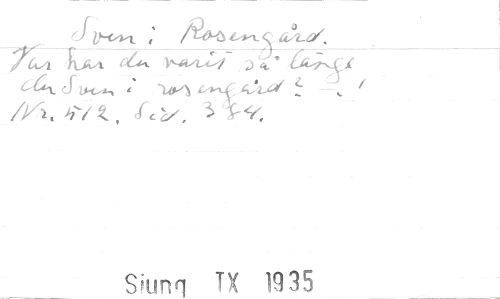 Sven i Rosengård.
Var har du varit så länge
du Sven i rosengård? -.'
Nr. 512. Sid. 384.
Sjung IX 1935